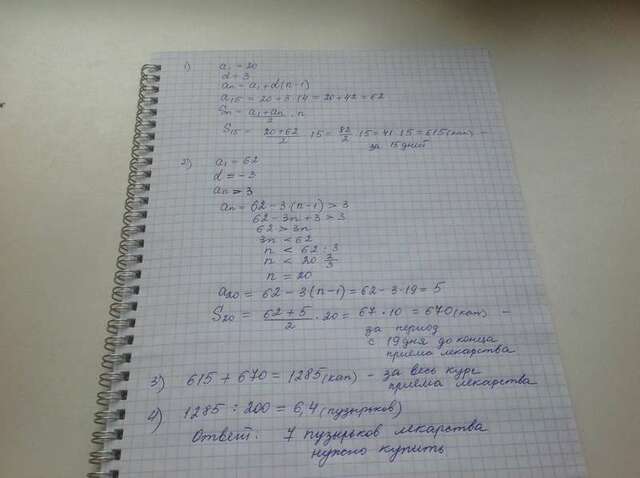 1) a₁ = 20
d = 3
aₙ = a₁ + d(n-1)
a₁₅ = 20 + 3·14 = 20 + 42 = 62
Sₙ = (a₁ + aₙ)/2 · n
S₁₅ = (20+62)/2 · 15 = 82/2 · 15 = 41·15 = 615 (кап) –
за 15 дней
2) a₁ = 62
d = -3
aₙ > 3
aₙ = 62 - 3(n-1) > 3
62 - 3n + 3 > 3
62 > 3n
3n < 62
n < 62 : 3
n < 20 2/3
n = 20
a₂₀ = 62 - 3(n-1) = 62 - 3·19 = 5
S₂₀ = (62+5)/2 · 20 = 67·10 = 670 (кап) –
за период
с 19 дня до конца
приема лекарства
3) 615 + 670 = 1285 (кап) – за весь курс
приема лекарства
4) 1285 : 200 = 6,4 (пузырьков)
Ответ: 7 пузырьков лекарства
нужно купить